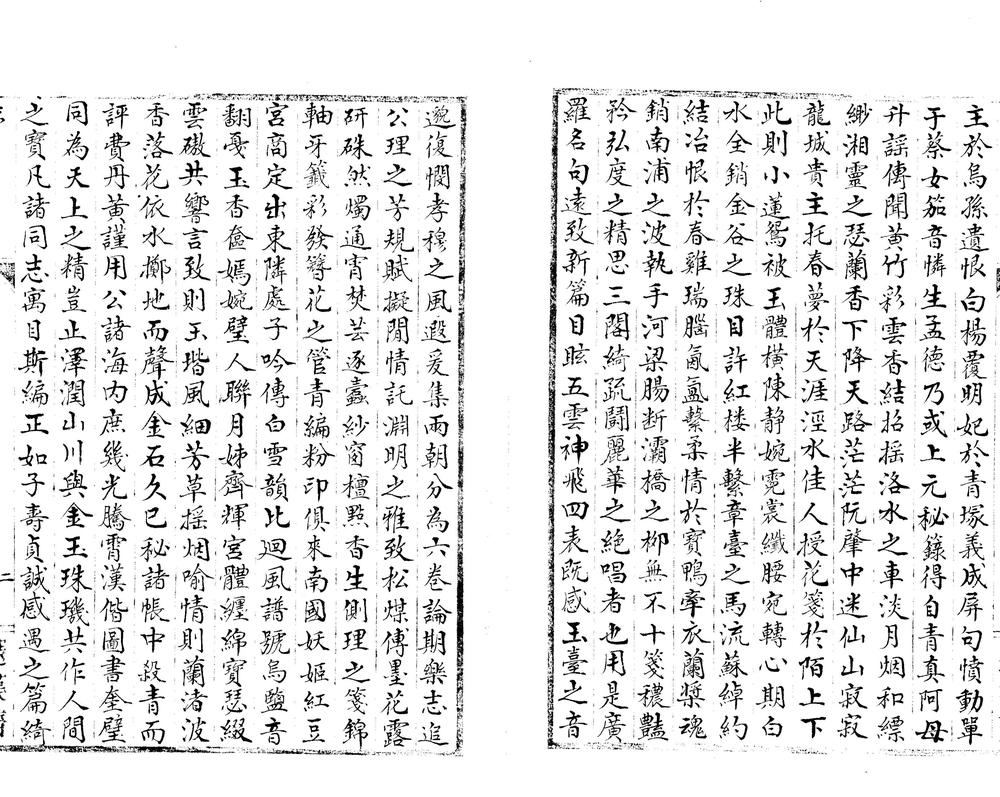 主於烏孫遺恨白楊覆明妃於青塚義成屏句憤動單
于蔡女笳音憐生孟德乃或上元秘籙得自青真阿母
升謡傳聞黄竹彩雲香結招摇洛水之車淡月烟和縹
緲湘靈之瑟蘭香下降天路茫茫阮肇中迷仙山寂寂
龍城貴主托春夢於天涯涇水佳人授花箋於陌上下
此則小蓮鴛被玉體橫陳静婉霓裳纖腰宛轉心期白
水全銷金谷之珠目許紅楼半繫章臺之馬流蘇綽約
結冶恨於春雞瑞腦氤氲繫柔情於寶鴨牽衣蘭槳魂
銷南浦之波執手河梁腸断灞橋之柳無不十箋穠豔
矜弘度之精思三閣綺疏鬪麗華之絶唱者也用是廣
羅名句遠致新篇目眩五雲神飛四表既感玉臺之音
邈復憫孝穆之風遐爰集两朝分為六卷論期樂志追
公理之芳規賦擬閒情託淵明之雅致松煤傳墨花露
研硃然燭通宵焚芸逐蠹紗窗檀㸃香生側理之箋錦
軸牙籤彩發簪花之管青編粉印俱來南國妖姬紅豆
宮商定出東隣處子吟傳白雪韻比廻風譜號烏鹽音
翻戞玉香奩嫣婉璧人聯月姊齊輝宮體纏綿寶瑟綴
雲璈共響言致則玉堦風細芳草摇烟喻情則蘭渚波
香落花依水擲地而聲成金石久已秘諸帳中殺青而
評費丹黄謹用公諸海内庶幾光騰霄漢偕圖書奎璧
同為天上之精豈止澤潤山川與金玉珠璣共作人間
之寶凡諸同志寓目斯編正如子壽貞誠感遇之篇綺
二